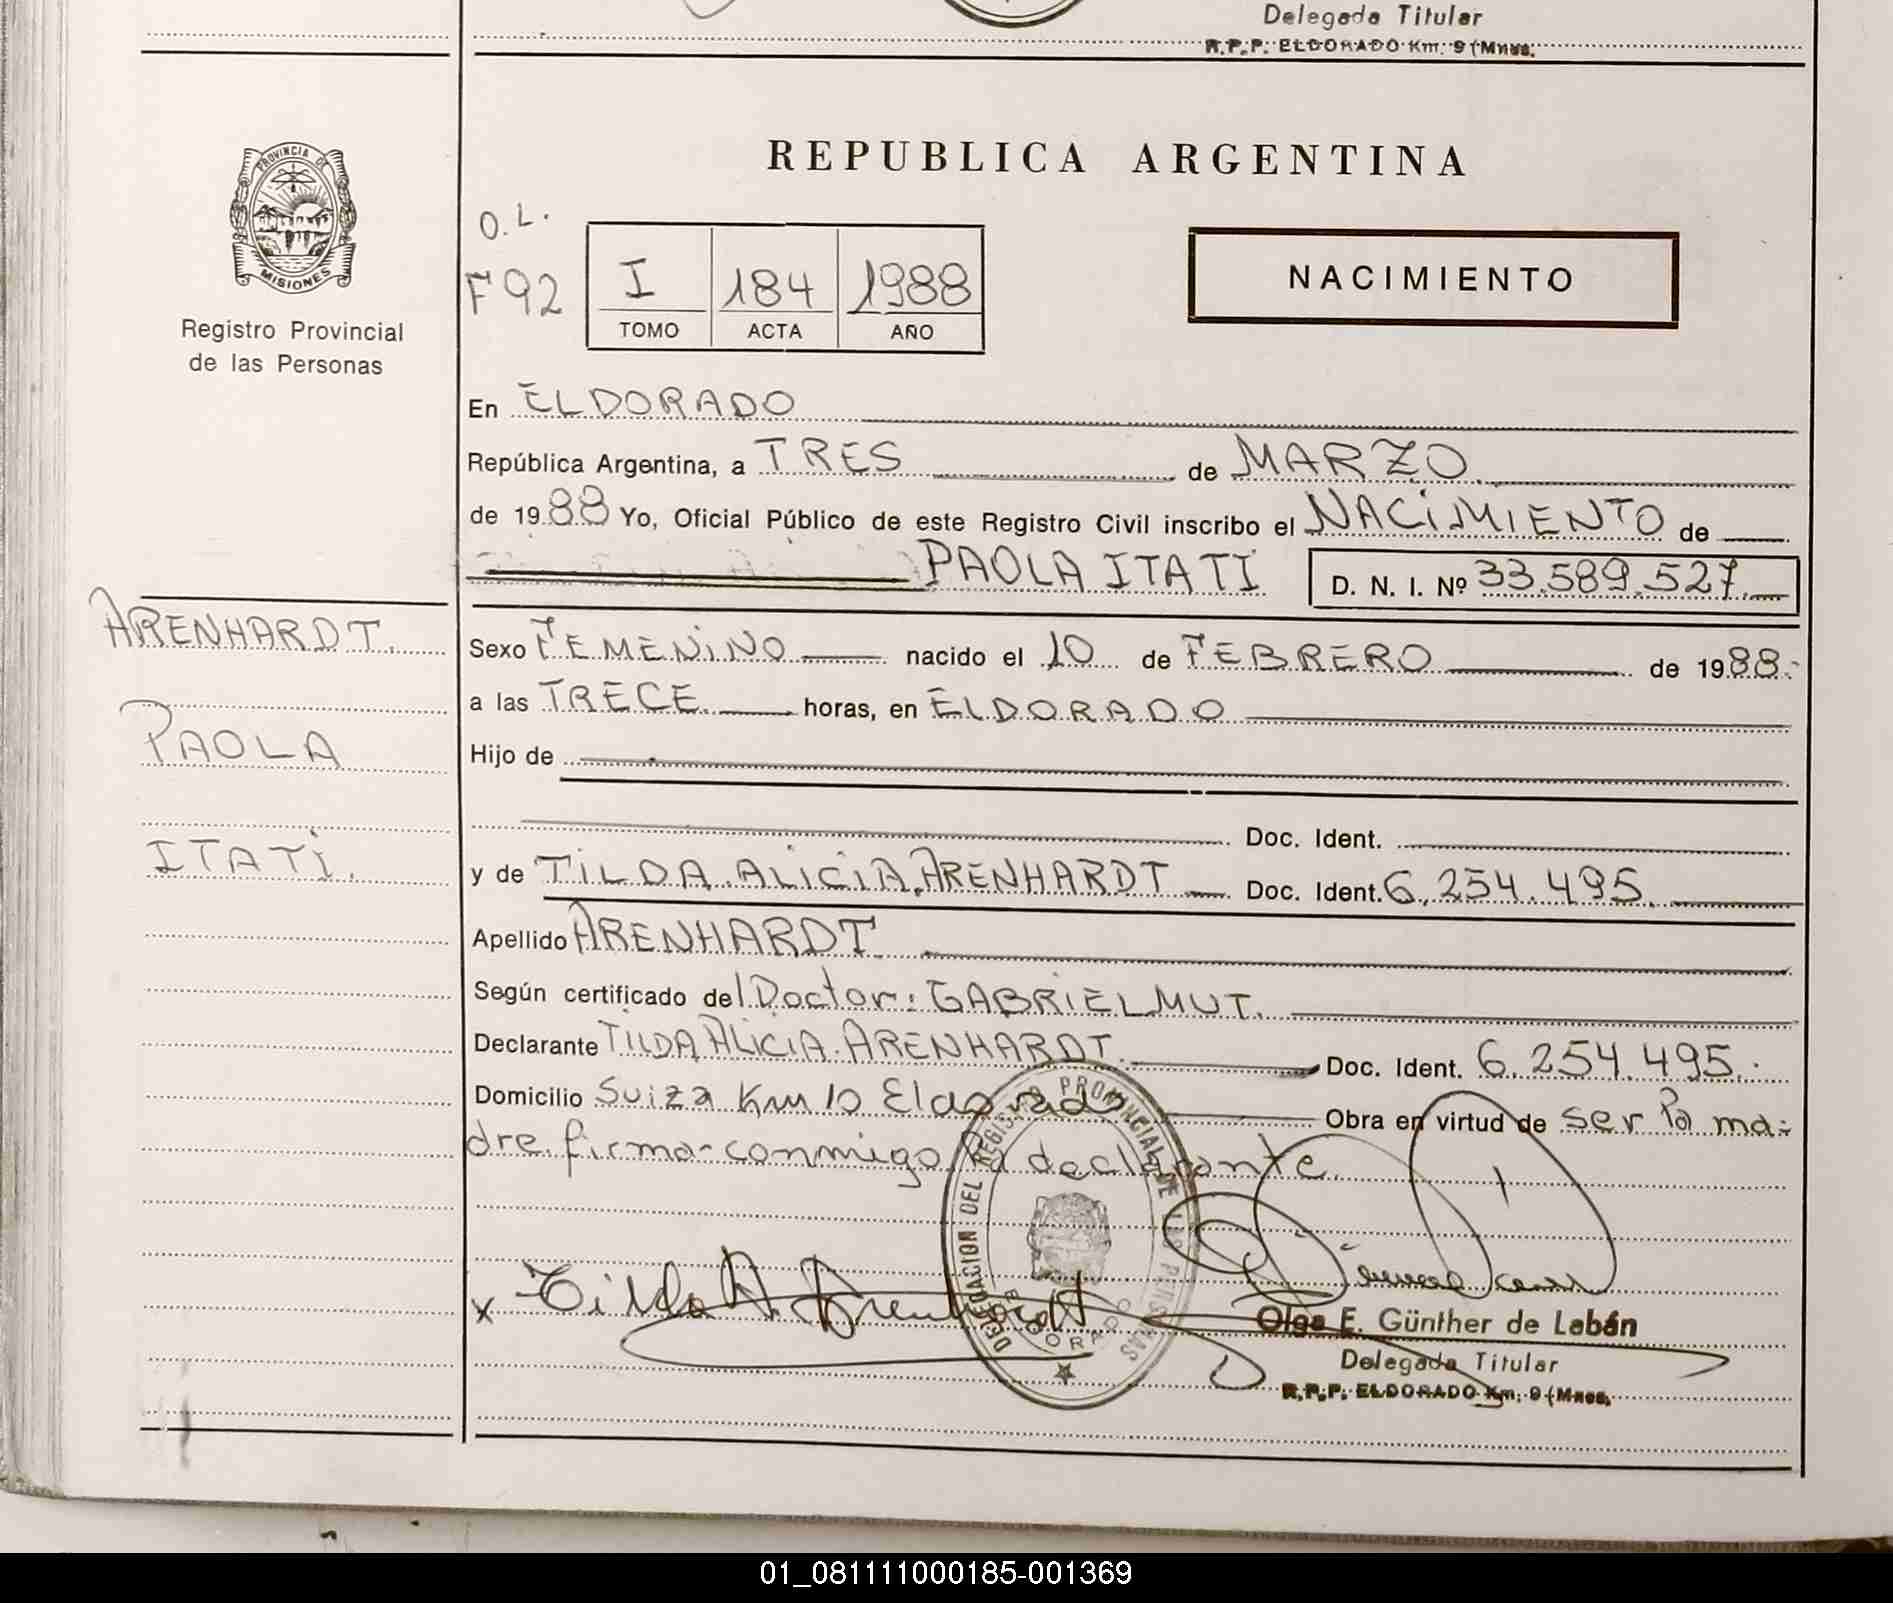 Delegada Titular
R.P.P. ELDORADO Km. 9 (Mnes.
PROVINCIA DE
MISIONES
Registro Provincial
de las Personas
REPUBLICA ARGENTINA
O.L.
F92
I 184 1988
TOMO ACTA AÑO
NACIMIENTO
En ELDORADO
República Argentina, a TRES de MARZO
de 1988 Yo, Oficial Público de este Registro Civil inscribo el NACIMIENTO de
PAOLA ITATI D. N. I. Nº 33.589.527.
ARENHARDT.
PAOLA
ITATI.
Sexo FEMENINO nacido el 10 de FEBRERO de 1988.-
a las TRECE horas, en ELDORADO
Hijo de
Doc. Ident.
y de TILDA ALICIA ARENHARDT Doc. Ident. 6.254.495.
Apellido ARENHARDT
Según certificado del Doctor: GABRIEL MUT.
Declarante TILDA ALICIA ARENHARDT. Doc. Ident. 6.254.495.
Domicilio Suiza Km 10 Eldorado Obra en virtud de ser la ma-
dre. firma conmigo la declarante.
DELEGACION DEL REGISTRO PROVINCIAL DE LAS PERSONAS
ELDORADO
x Tilda A. Arenhardt
Olga E. Günther de Labán
Delegada Titular
R.P.P. ELDORADO Km. 9 (Mnes.
01_081111000185-001369